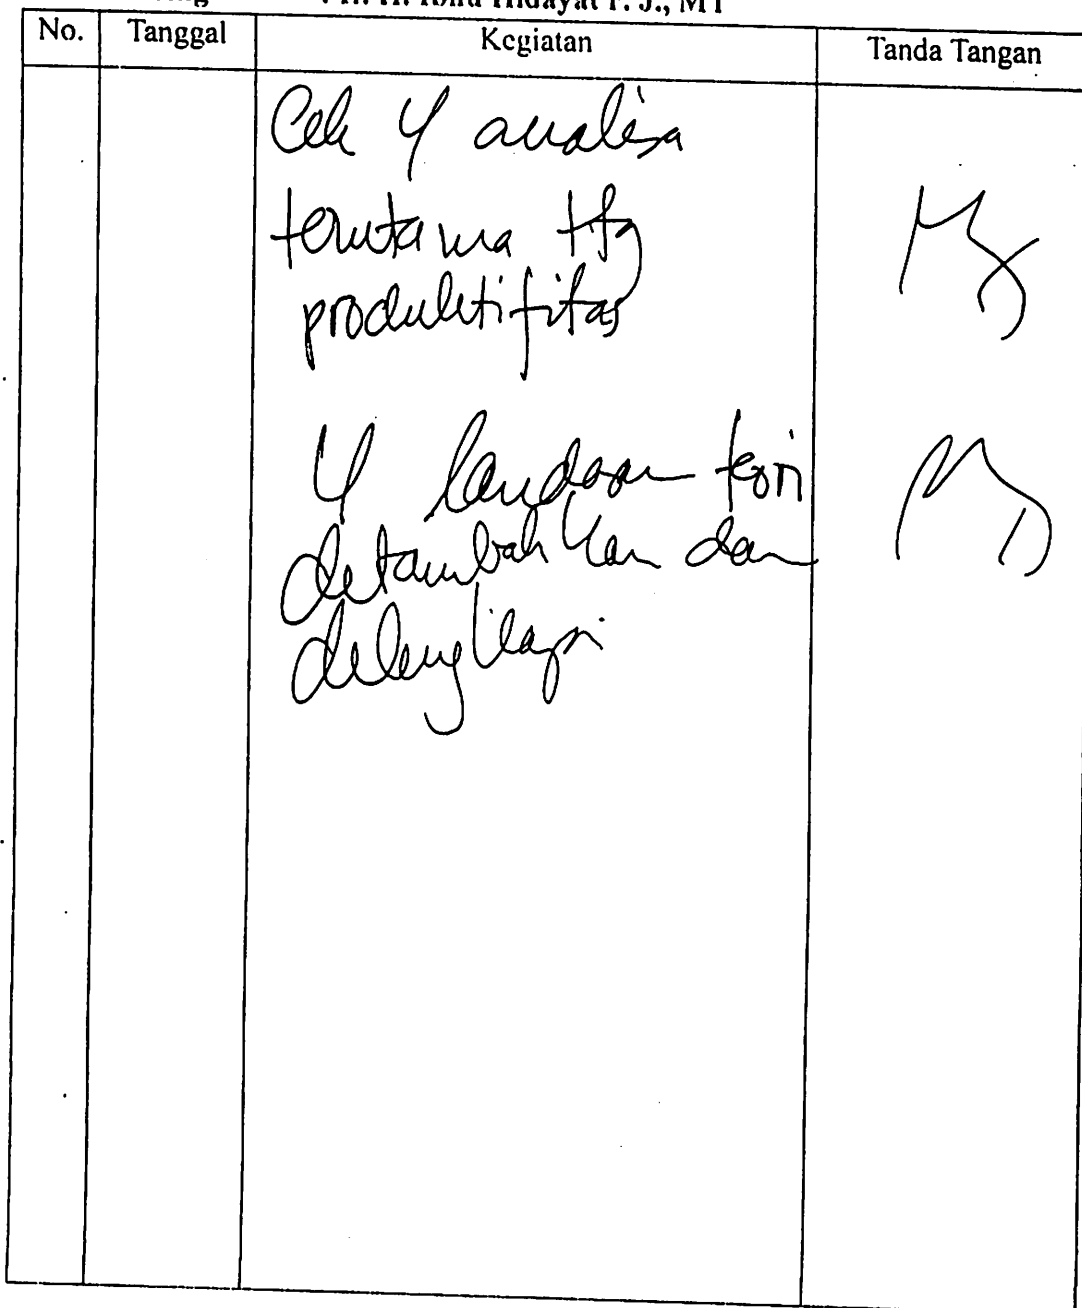 Hidayat F. J., MT
No. Tanggal Kegiatan Tanda Tangan
Cek Y analisa
terutama ttg
produktifitas
Y landasan teori
ditambahkan dan
dilengkapi